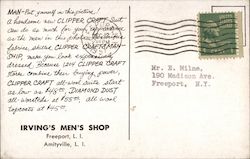 MAN-Put yourself in this picture!
A handsome new CLIPPER CRAFT suit
can do as much for your appearance
as the men in this photo.
fabrics, where CLIPPER CRAFTSMAN-
SHIP, make you look expensively
dressed. Because 1214 CLIPPER CRAFT
stores combine their buying power,
CLIPPER CRAFT all-wool suits start
as low as $45. DIAMOND DUST
all-worsteds at $55, all wool
topcoats at $45.
IRVING'S MEN'S SHOP
Freeport, L. I.
Amityville, L. I.
Mr. E. Milne,
190 Madison Ave.
Freeport, N.Y.